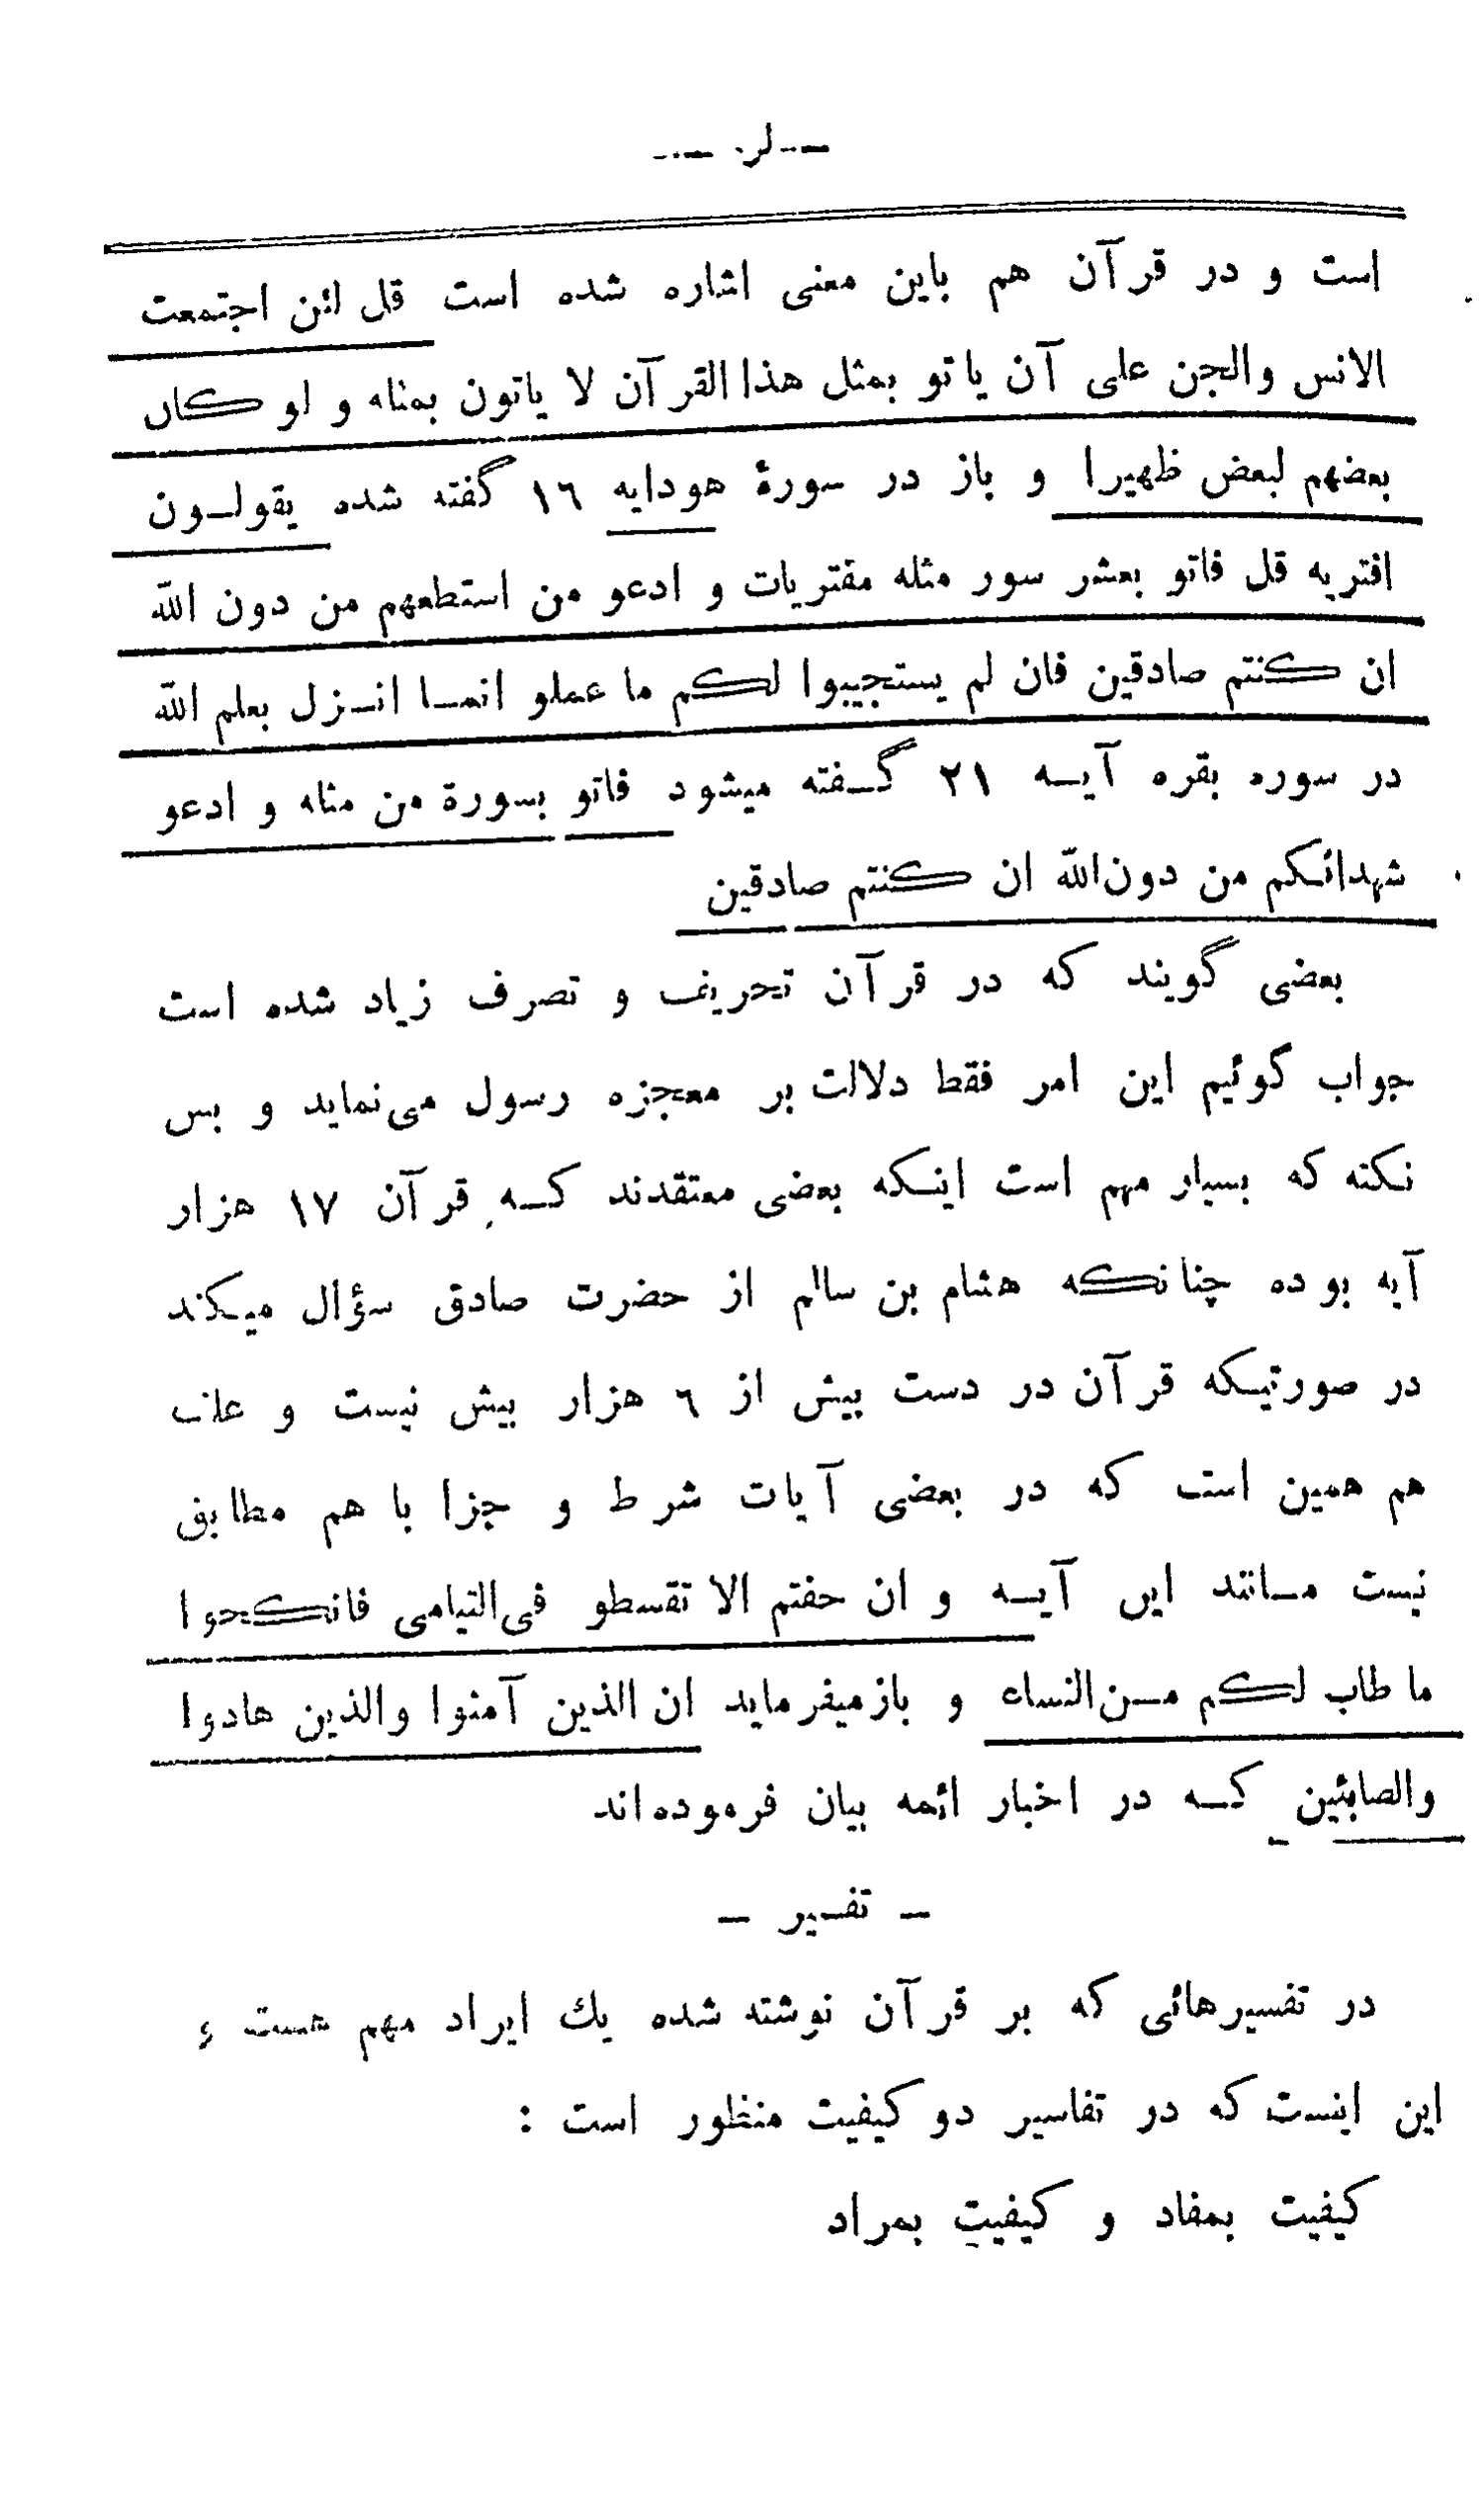 است و در قرآن هم باین معنی اشاره شده است قل لئن اجتمعت
الانس والجن علی آن یاتو بمثل هذا القرآن لا یاتون بمثله و لو کان
بعضهم لبعض ظهیرا و باز در سورهٔ هودایه ١٦ گفته شده یقولون
افتریه قل فاتو بعشر سور مثله مفتریات و ادعو من استطعهم من دون الله
ان کنتم صادقین فان لم یستجیبوا لکم ما عملو انما انزل بعلم الله
در سوره بقره آیه ٢١ گفته میشود فاتو بسورة من مثله و ادعو
شهدائکم من دون‌الله ان کنتم صادقین
بعضی گویند که در قرآن تحریف و تصرف زیاد شده است
جواب گوئیم این امر فقط دلالت بر معجزه رسول می‌نماید و بس
نکته که بسیار مهم است اینکه بعضی معتقدند که قرآن ١٧ هزار
آیه بوده چنانکه هشام بن سالم از حضرت صادق سؤال میکند
در صورتیکه قرآن در دست بیش از ٦ هزار بیش نیست و علت
هم همین است که در بعضی آیات شرط و جزا با هم مطابق
نیست مانند این آیه و ان خفتم الا تقسطو فی‌التیامی فانکحوا
ما طاب لکم من‌النساء و باز میفرماید ان الذین آمنوا والذین هادوا
والصابئین که در اخبار ائمه بیان فرموده‌اند
– تفسیر –
در تفسیرهائی که بر قرآن نوشته شده یك ایراد مهم هست و
این اینست که در تفاسیر دو کیفیت منظور است :
کیفیت بمفاد و کیفیت بمراد